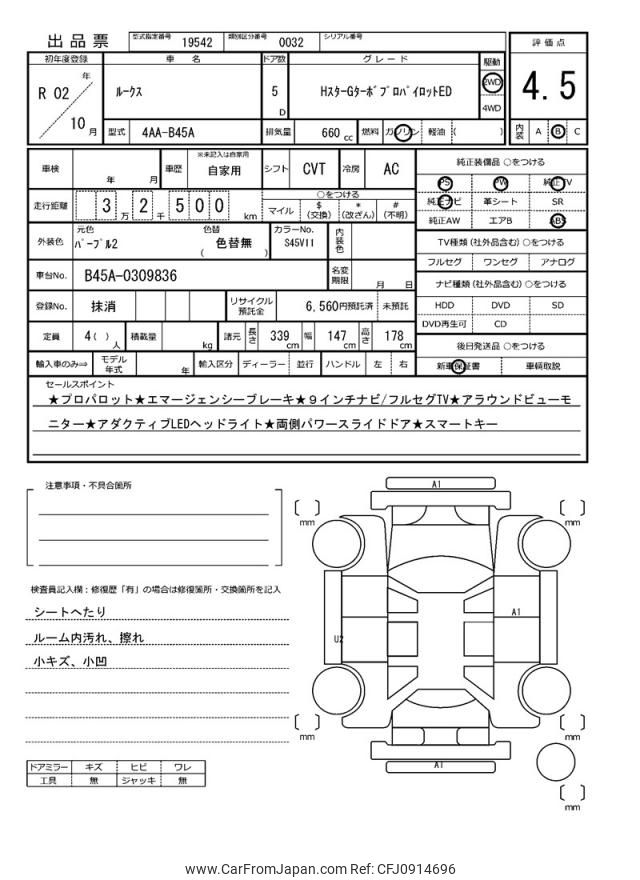 出品票 型式指定番号 19542 類別区分番号 0032 シリアル番号
初年度登録 車 名 ドア数 グレード 駆動 評価点
R 02 年 10 月 ルークス 5 D HスターGターボプロパイロットED 2WD 4WD 4.5
型式 4AA-B45A 排気量 660 cc 燃料 ガソリン 軽油 ( ) 内装 A B C
車検 年 月 車歴 ※未記入は自家用 自家用 シフト CVT 冷房 AC 純正装備品 ○をつける
PS PW 純正TV
走行距離 3 万 2 千 5 0 0 km ○をつける 純正ナビ 革シート SR
マイル $ (交換) * (改ざん) # (不明) 純正AW エアB ABS
外装色 元色 パープル2 色替 ( 色替無 ) カラーNo. S45VII 内装色 TV種類(社外品含む)○をつける
フルセグ ワンセグ アナログ
車台No. B45A-0309836 名変期限 月 日 ナビ種類(社外品含む)○をつける
登録No. 抹消 リサイクル預託金 6,560円預託済 未預託 HDD DVD SD
DVD再生可 CD
定員 4( ) 人 積載量 kg 諸元 長さ 339 cm 幅 147 cm 高さ 178 cm 後日発送品 ○をつける
輸入車のみ⇒ モデル年式 年 輸入区分 ディーラー 並行 ハンドル 左 右 新車保証書 車輌取説
セールスポイント
★プロパロット★エマージェンシーブレーキ★9インチナビ/フルセグTV★アラウンドビューモ
ニター★アダクティブLEDヘッドライト★両側パワースライドドア★スマートキー
注意事項・不具合箇所
検査員記入欄:修復歴「有」の場合は修復箇所・交換箇所を記入
シートへたり
ルーム内汚れ、擦れ
小キズ、小凹
A1
mm mm
A1
U2
mm mm
A1
mm
ドアミラー キズ ヒビ ワレ
工具 無 ジャッキ 無
www.CarFromJapan.com Ref: CFJ0914696